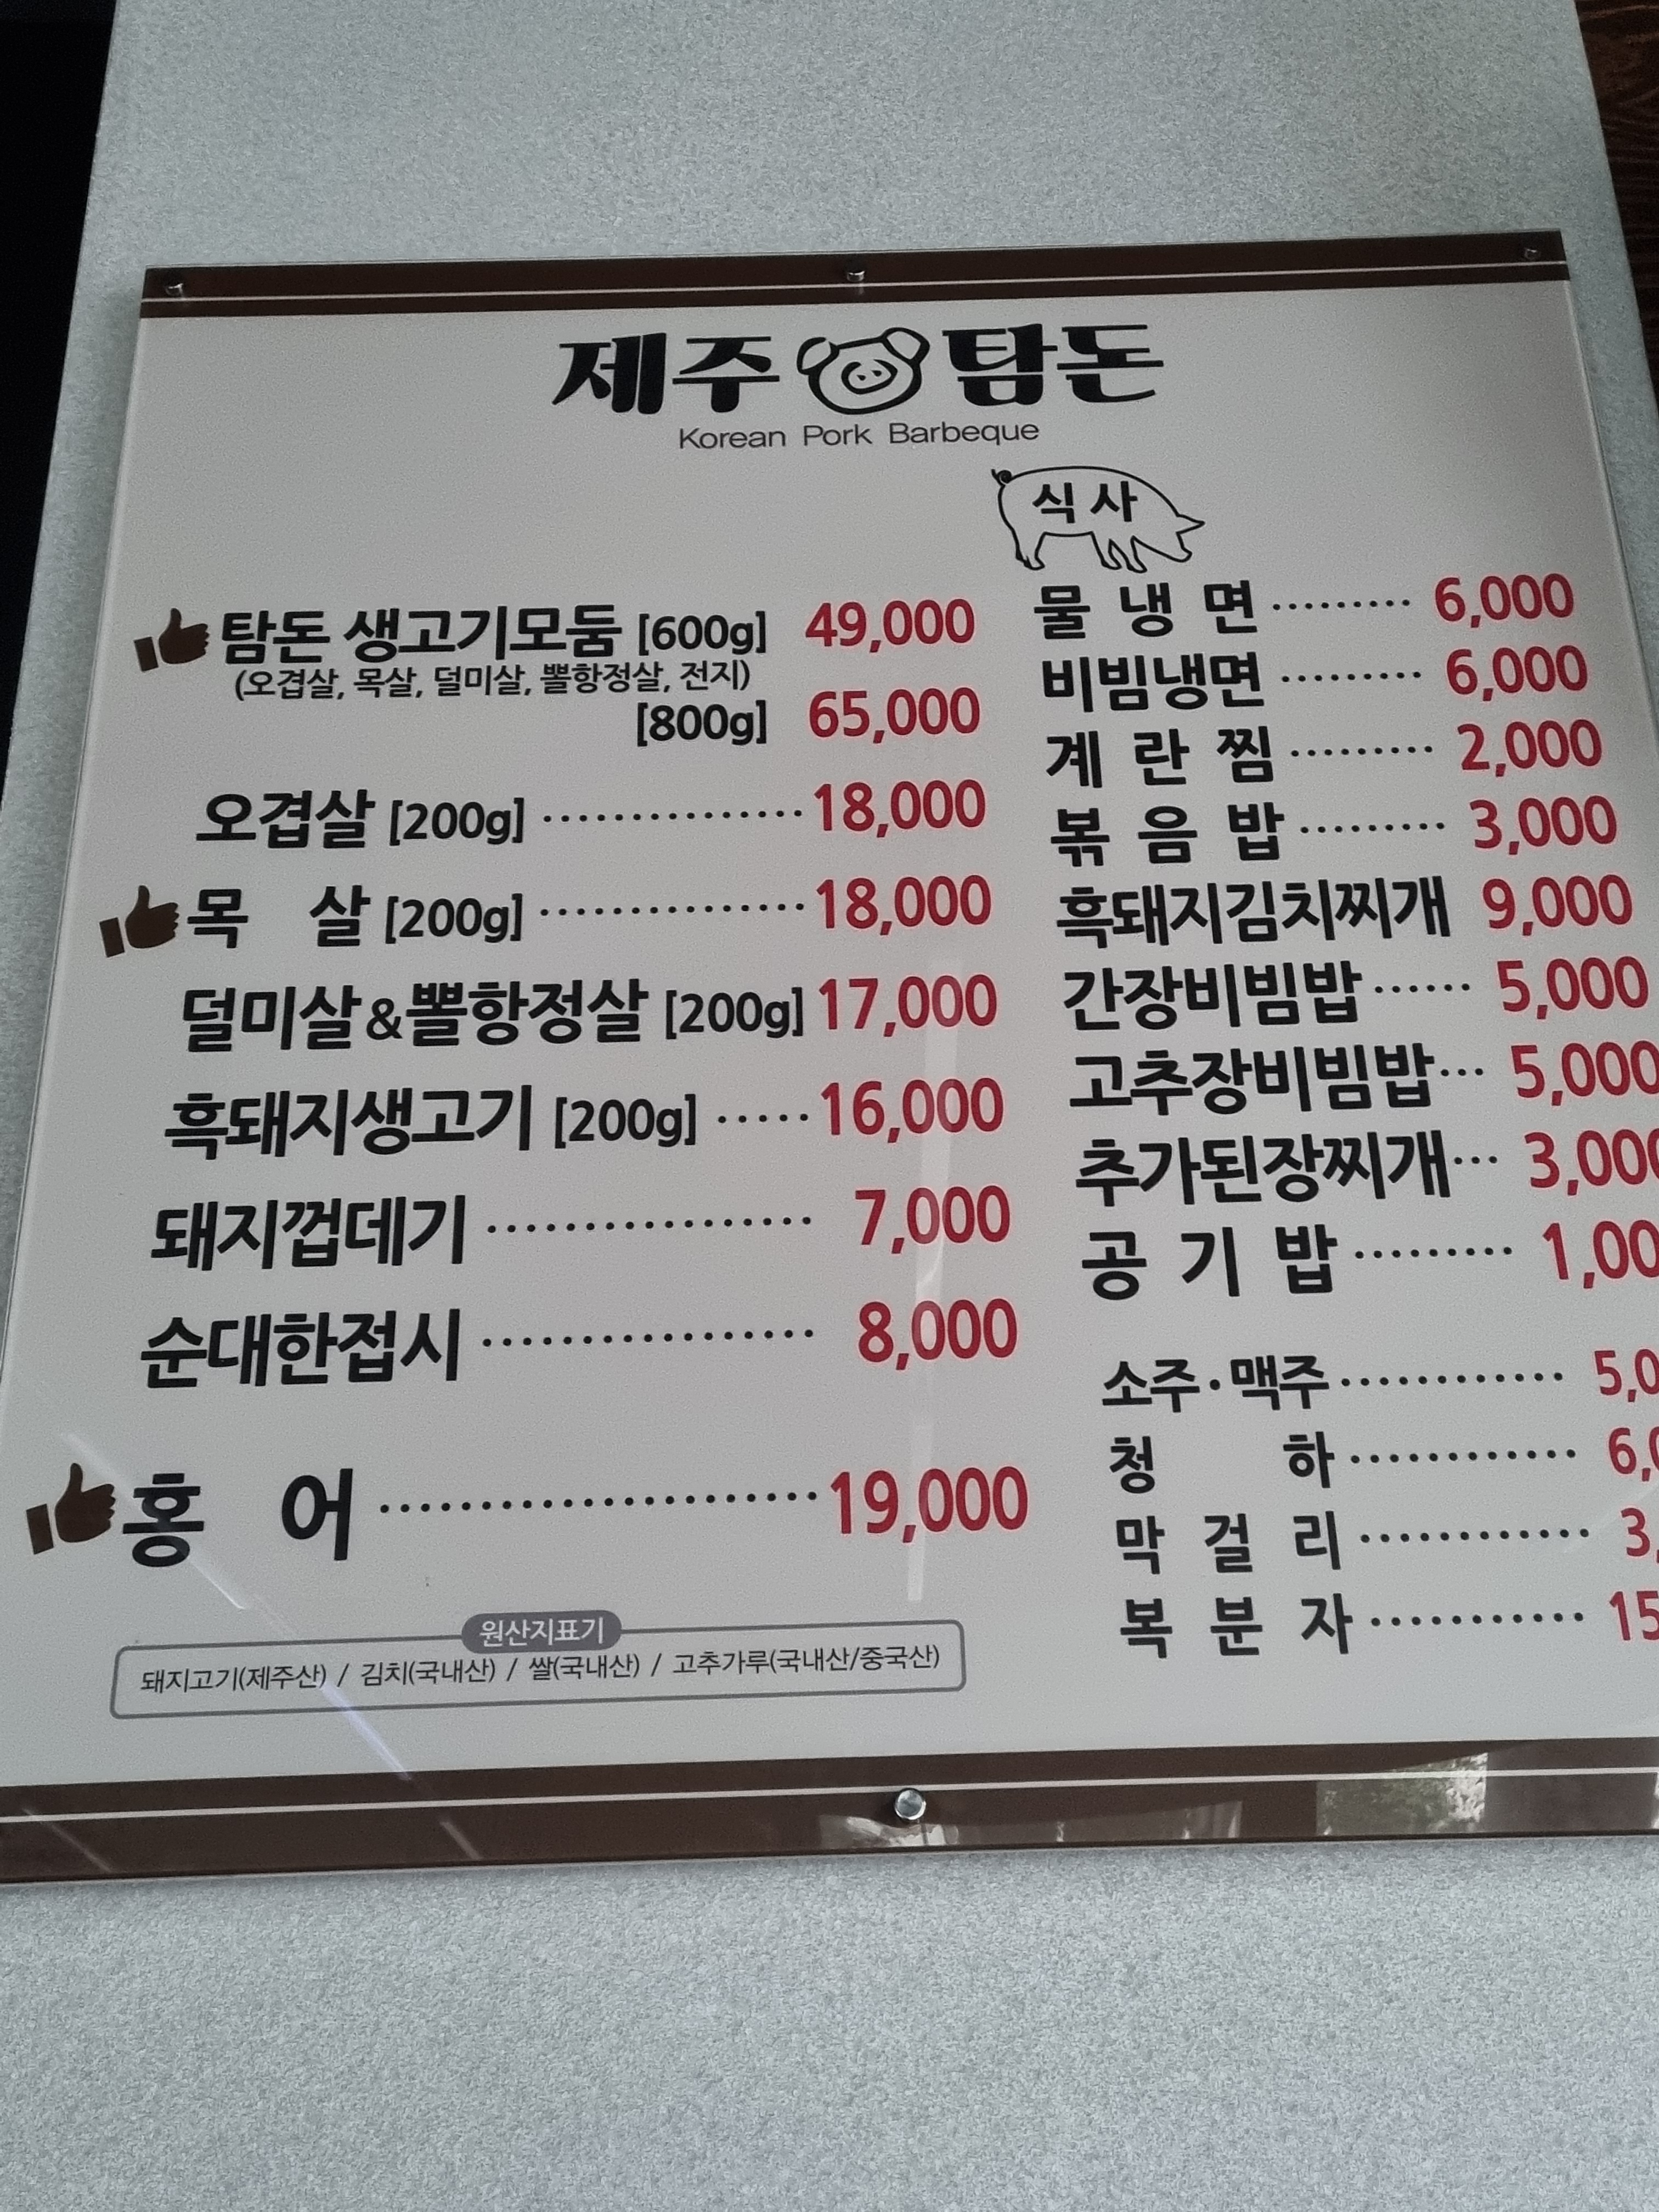 제주 탐돈
Korean Pork Barbeque
탐돈 생고기모둠 [600g] 49,000
(오겹살, 목살, 덜미살, 뽈항정살, 전지)
[800g] 65,000
오겹살 [200g] ··············· 18,000
목 살 [200g] ··············· 18,000
덜미살&뽈항정살 [200g] 17,000
흑돼지생고기 [200g] ····· 16,000
돼지껍데기 ·················· 7,000
순대한접시 ·················· 8,000
홍 어 ······················ 19,000
원산지표기
돼지고기(제주산) / 김치(국내산) / 쌀(국내산) / 고추가루(국내산/중국산)
식사
물 냉 면 ········· 6,000
비빔냉면 ········· 6,000
계 란 찜 ········· 2,000
볶 음 밥 ········· 3,000
흑돼지김치찌개 9,000
간장비빔밥 ······ 5,000
고추장비빔밥 ··· 5,000
추가된장찌개 ··· 3,000
공 기 밥 ········· 1,00
소주·맥주 ············ 5,0
청 하 ············ 6,0
막 걸 리 ············ 3,
복 분 자 ··········· 15